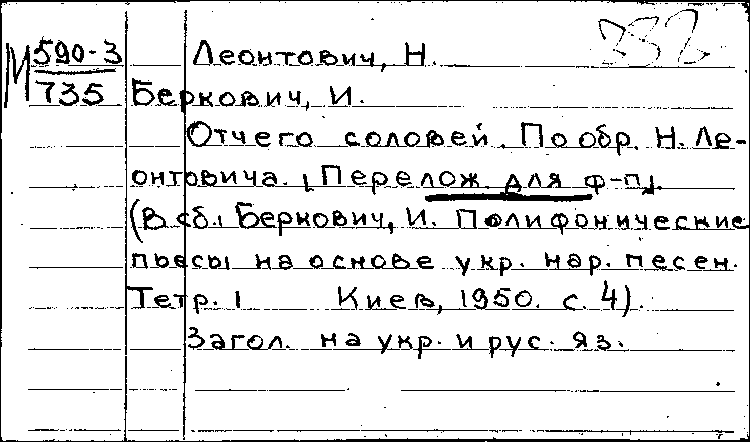 М 590-3 Леонтович, Н. 332
735 Беркович, И.
Отчего соловей. По обр. Н. Ле-
онтовича. [Перелож. для ф-п].
(В сб.: Беркович, И. Полифонические
пьесы на основе укр. нар. песен.
Тетр. 1 Киев, 1950. с. 4).
Загол. на укр. и рус. яз.